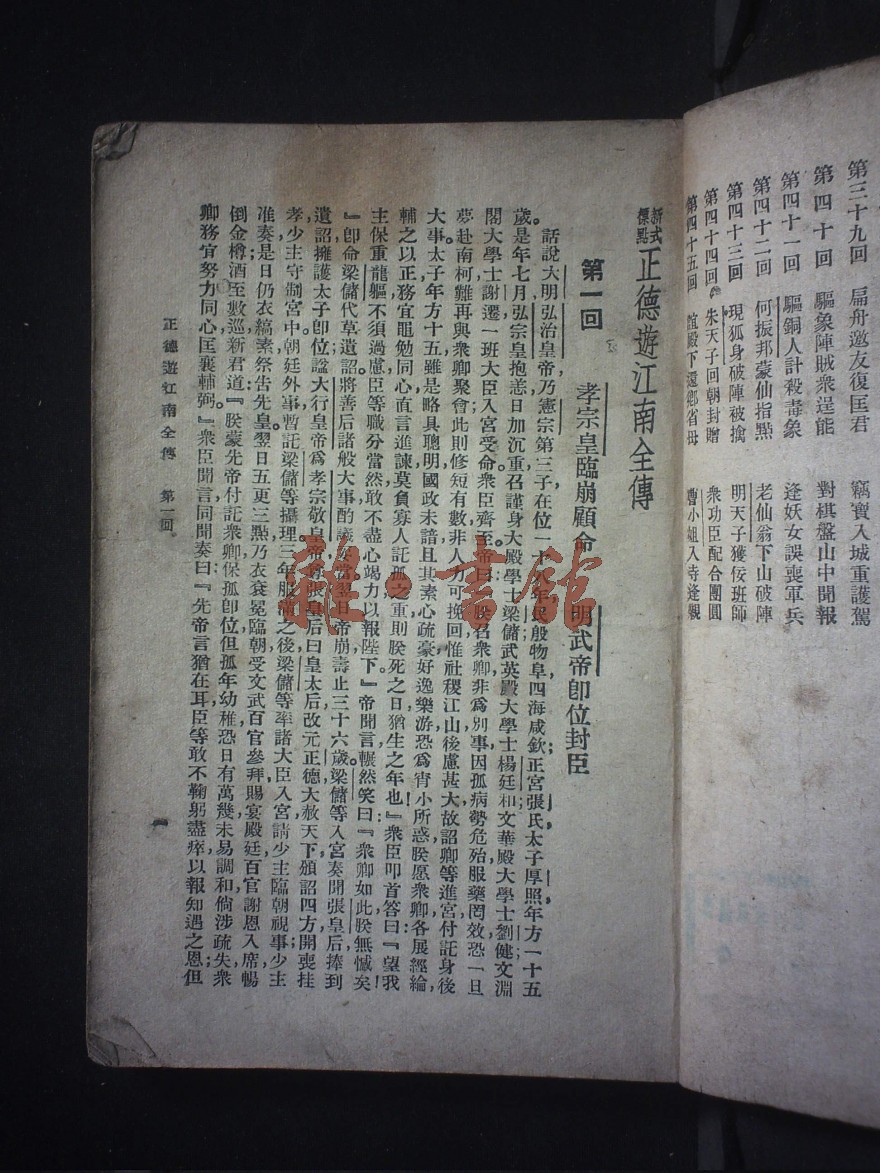 第三十九回　扁舟邀友復匡君　竊寶入城重護駕
第四十回　驅象陣賊衆逞能　對棋盤山中聞報
第四十一回　驅銅人計殺毒象　逢妖女誤喪軍兵
第四十二回　何振邦蒙仙指點　老仙翁下山破陣
第四十三回　現狐身破陣被擒　明天子獲佞班師
第四十四回　朱天子回朝封贈　衆功臣配合團圓
第四十五回　誼殿下還鄉省母　曹小姐入寺逢親
新式標點 正德遊江南全傳
第一回　孝宗皇臨崩顧命　明武帝卽位封臣
話說大明弘治皇帝乃憲宗第三子在位一十八年民殷物阜四海咸欽正宮張氏太子厚照年方一十五
歲。是年七月弘宗皇抱恙日加沉重召謹身大殿學士梁儲武英殿大學士楊廷和文華殿大學士劉健文淵
閣大學士謝遷一班大臣入宮受命。衆臣齊至帝曰『朕召衆卿非爲別事因孤病勢危殆服藥罔效恐一旦
夢赴南柯難再與衆卿聚會此則修短有數非人力可挽回惟社稷江山後慮甚大故詔卿等進宮付託身後
大事。太子年方十五雖是略具聰明國政未諳且其素心疏豪好逸樂游恐爲宵小所惑朕愿衆卿各展經綸,
輔之以正務宜黽勉同心直言進諫莫負寡人託孤之重則朕死之日猶生之年也』衆臣叩首答曰『望我
主保重龍軀不須過慮臣等職分當然敢不盡心竭力以報陛下。』帝聞言囅然笑曰『衆卿如此朕無憾矣!
』卽命梁儲代草遺詔。將善后諸般大事酌議妥當。翌日帝崩壽止三十六歲。梁儲等入宮奏聞張皇后捧到
遺詔擁護太子卽位諡大行皇帝爲孝宗敬皇帝尊張皇后曰皇太后改元正德大赦天下頒詔四方開喪挂
孝少主守制宮中朝廷外事暫託梁儲等攝理三年服滿之後梁儲等率諸大臣入宮請少主臨朝視事少主
准奏是日仍衣縞素祭告先皇。翌日五更三點乃衣袞冕臨朝受文武百官參拜賜宴殿廷百官謝恩入席暢
倒金樽酒至數巡新君道『朕蒙先帝付託衆卿保孤卽位但孤年幼稚恐日有萬幾未易調和倘涉疏失衆
卿務宜努力同心匡襄輔弼。』衆臣聞言同聞奏曰『先帝言猶在耳臣等敢不鞠躬盡瘁以報知遇之恩但
正德遊江南全傳　第一回。
雜·書館